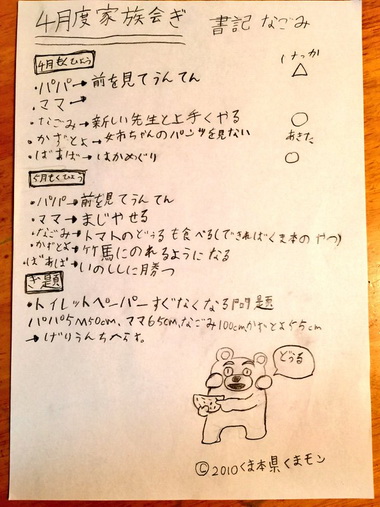 4月度家族会ぎ 書記 なごみ
4月もくひょう けっか
・パパ→前を見てうんてん △
・ママ→
・なごみ→新しい先生と上手くやる ○
・かずとよ→女市ちゃんのパンツを見ない あきた
・ばあば→はかめぐり ○
5月もくひょう
・パパ→前を見てうんてん
・ママ→まじやせる
・なごみ→トマトのどぅるも食べる(できればくま本のやつ)
・かずとよ→竹馬にのれるようになる
・ばあば→いのししに勝つ
ぎ題
・トイレットペーパーすぐなくなる問題
パパ5M50cm、ママ65cm、なごみ100cmかずとよ55cm
→げりうんちへらす。
どぅる
©2010くま本県くまモン